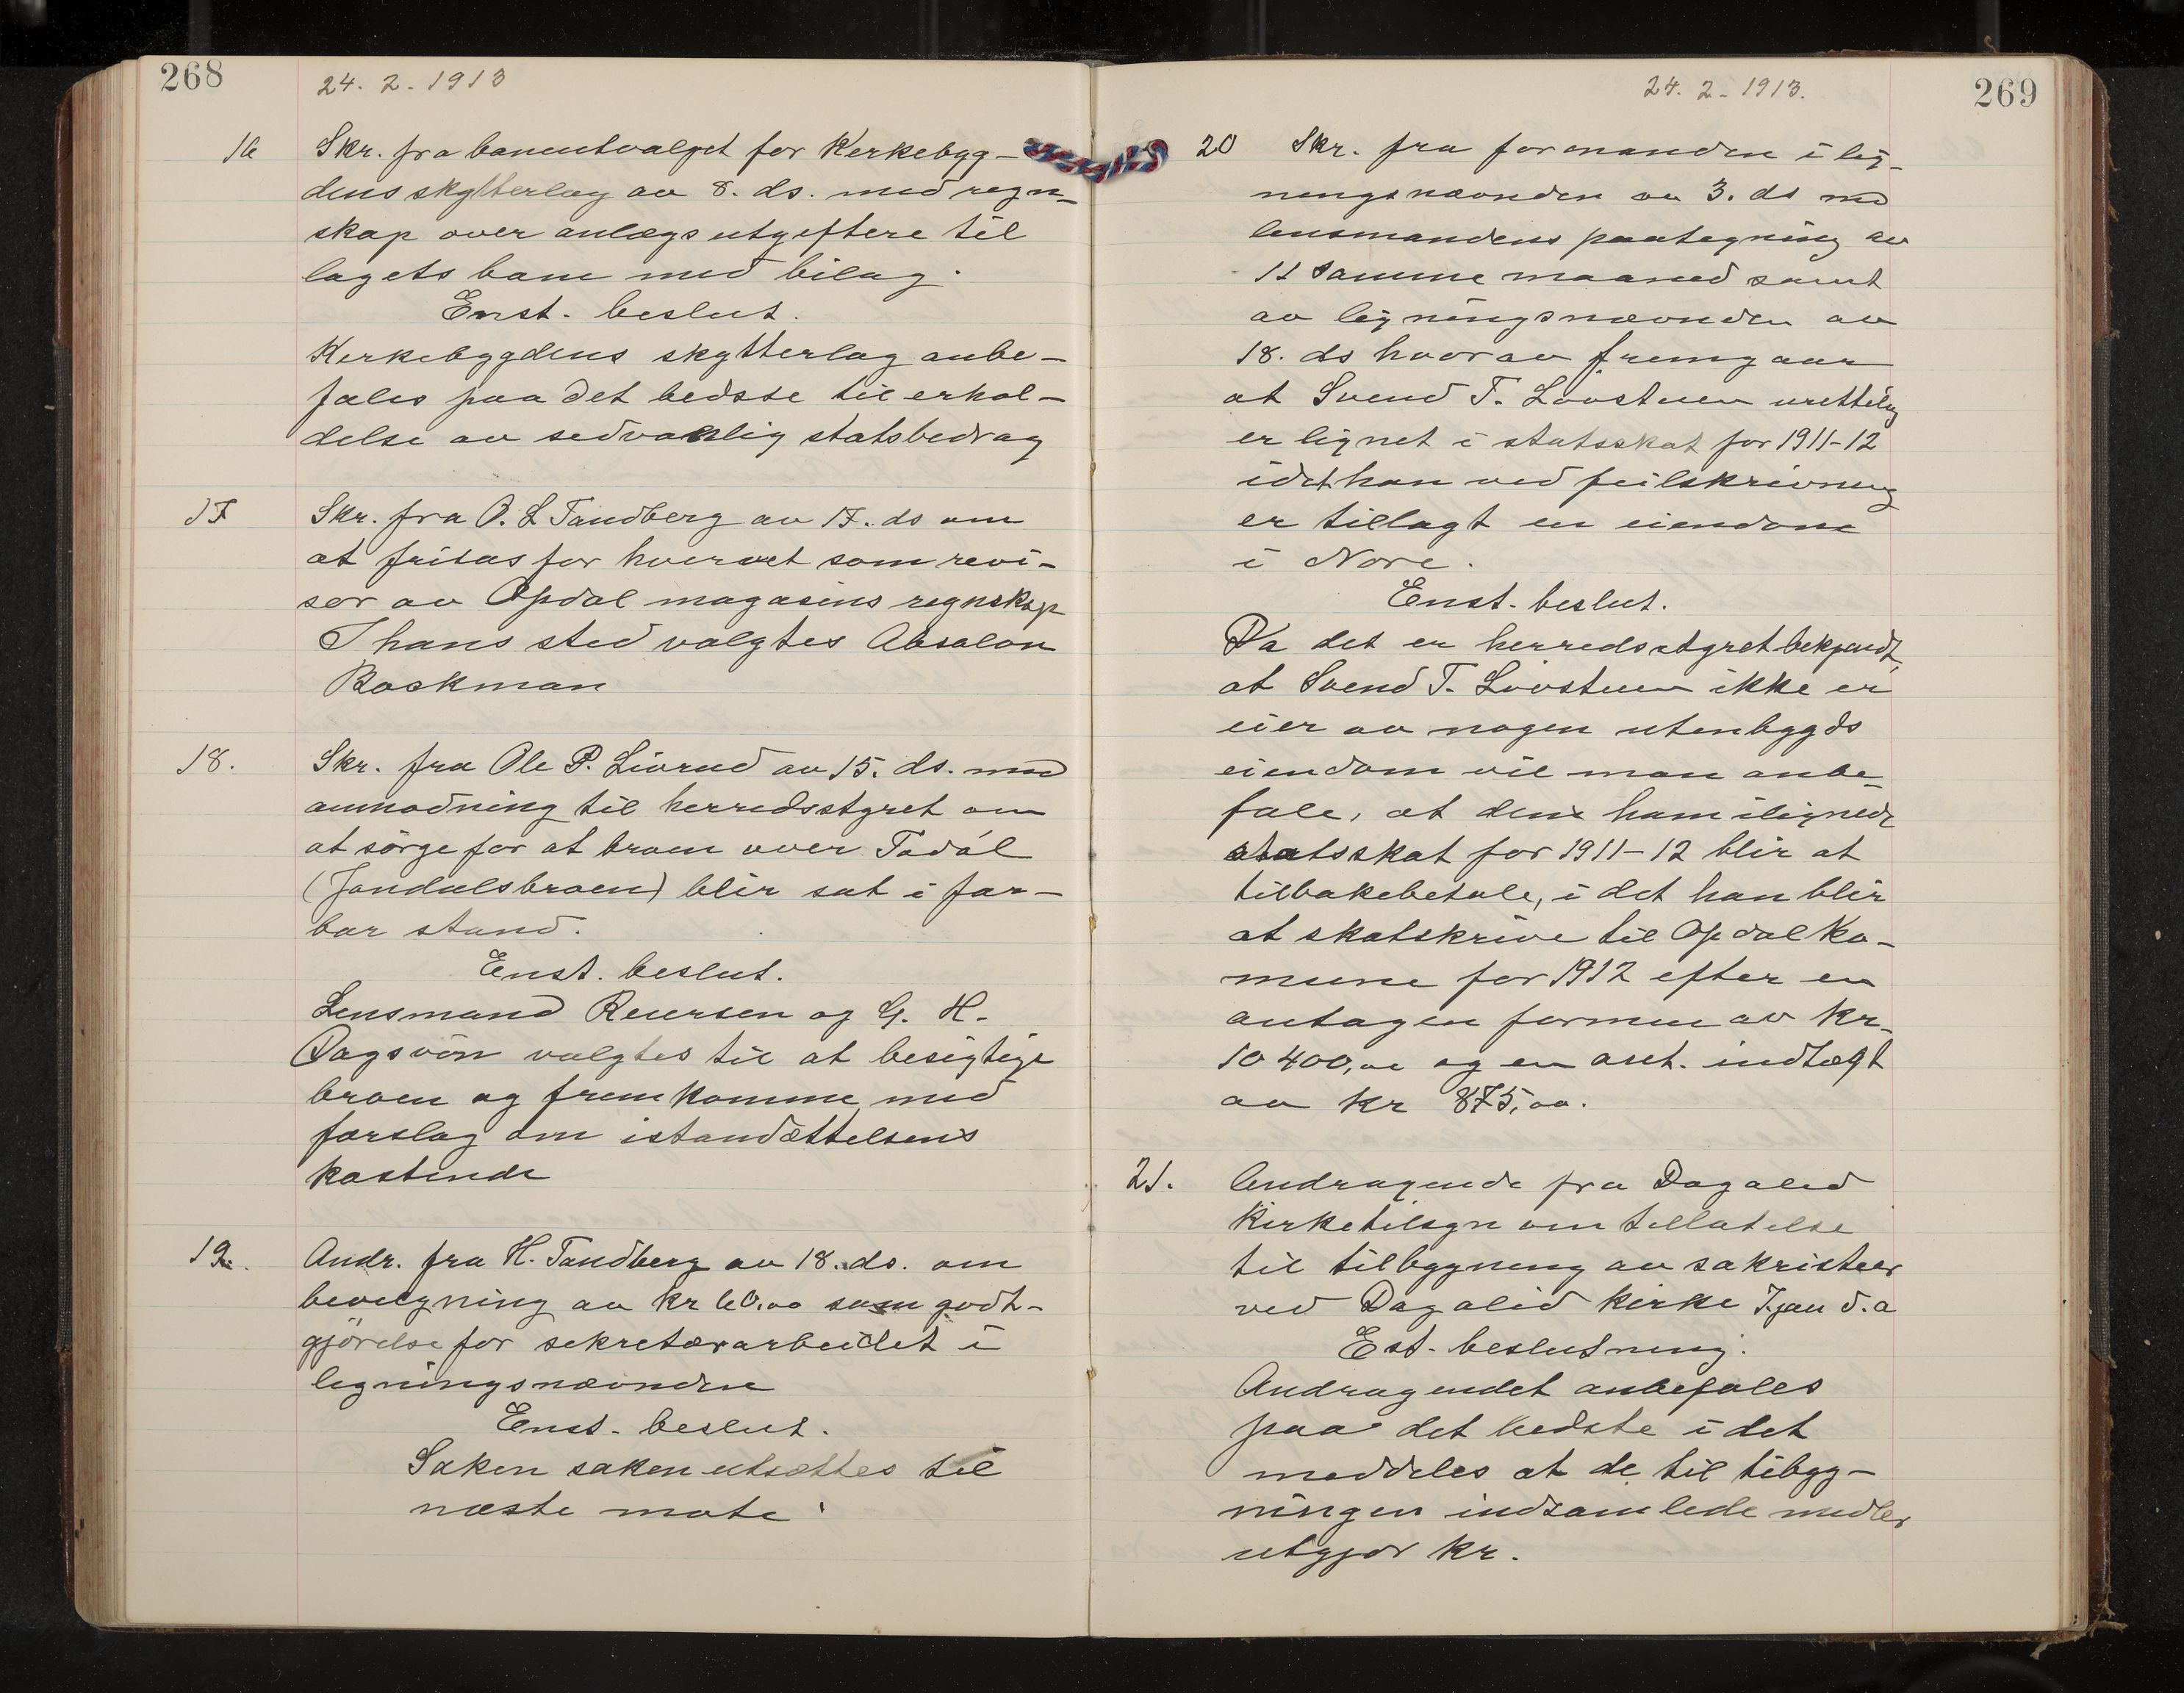 268
24. 2. 1913
16 Skr. fra baneutvalget for Kerkebygg-
dens skytterlag av 8. ds. med regn-
skap over anlægsutgiftere til
lagets bane med bilag.
Enst. beslut.
Kerkebygdens skytterlag anbe-
fales paa det bedste til erhol-
delse av sedvanlig statsbedrag
17 Skr. fra O. L Tandberg av 17. ds om
at fritas for hvervet som revi-
sor av Opdal magasins regnskap
I hans sted valgtes Absalon
Backman
18. Skr. fra Ole P. Livrud av 15. ds. med
anmodning til herredsstyret om
at sörge for at broen over Tadöl
(Jondalsbroen) blir sat i far-
bar stand.
Enst. beslut.
Lensmand Reuersen og G. H.
Dagsvön valgtes til at besigtige
broen og fremkomme med
forslag om istandsættelsens
kostende
19. Andr. fra H. Tandberg av 18. ds. om
bevilgning av kr 60.00 som godt-
gjörelse for sekretærarbeidet i
ligningsnævnden
Enst. beslut.
Saken saken utsættes til
næste møte
269
24. 2. 1913.
20 Skr. fra formanden i lig-
ningsnævnden av 3. ds med
lensmandens paategning av
11 samme maaned samt
av ligningsnævnden av
18. ds hvorav fremgaar
at Svend T. Lövstuen urettilig
er lignet i statsskat for 1911-12
idet han ved feilskrivning
er tillagt en eiendom
i Nore.
Enst. beslut.
Da det er herredsstyret bekjendt,
at Svend T. Lövstuen ikke er
eier av nogen utenbygds
eiendom vil man anbe-
fale, at den ham ilignede
statsskat for 1911-12 blir at
tilbakebetale, i det han blir
at skatskrive til Opdal ko-
mune for 1912 efter en
antagen formue av kr.
10 400,00 og en ant. indtægt
av kr 875,00.
21. Andragende fra Dagalid
Kirketilsyn om tillatelse
til tilbygning av sakristeer
ved Dagalid kirke 7. jan d. a
Est. beslutning.
Andragendet anbefales
paa det bedste i det
meddeles at de til tibyg-
ningen indsamlede midler
utgjør kr.